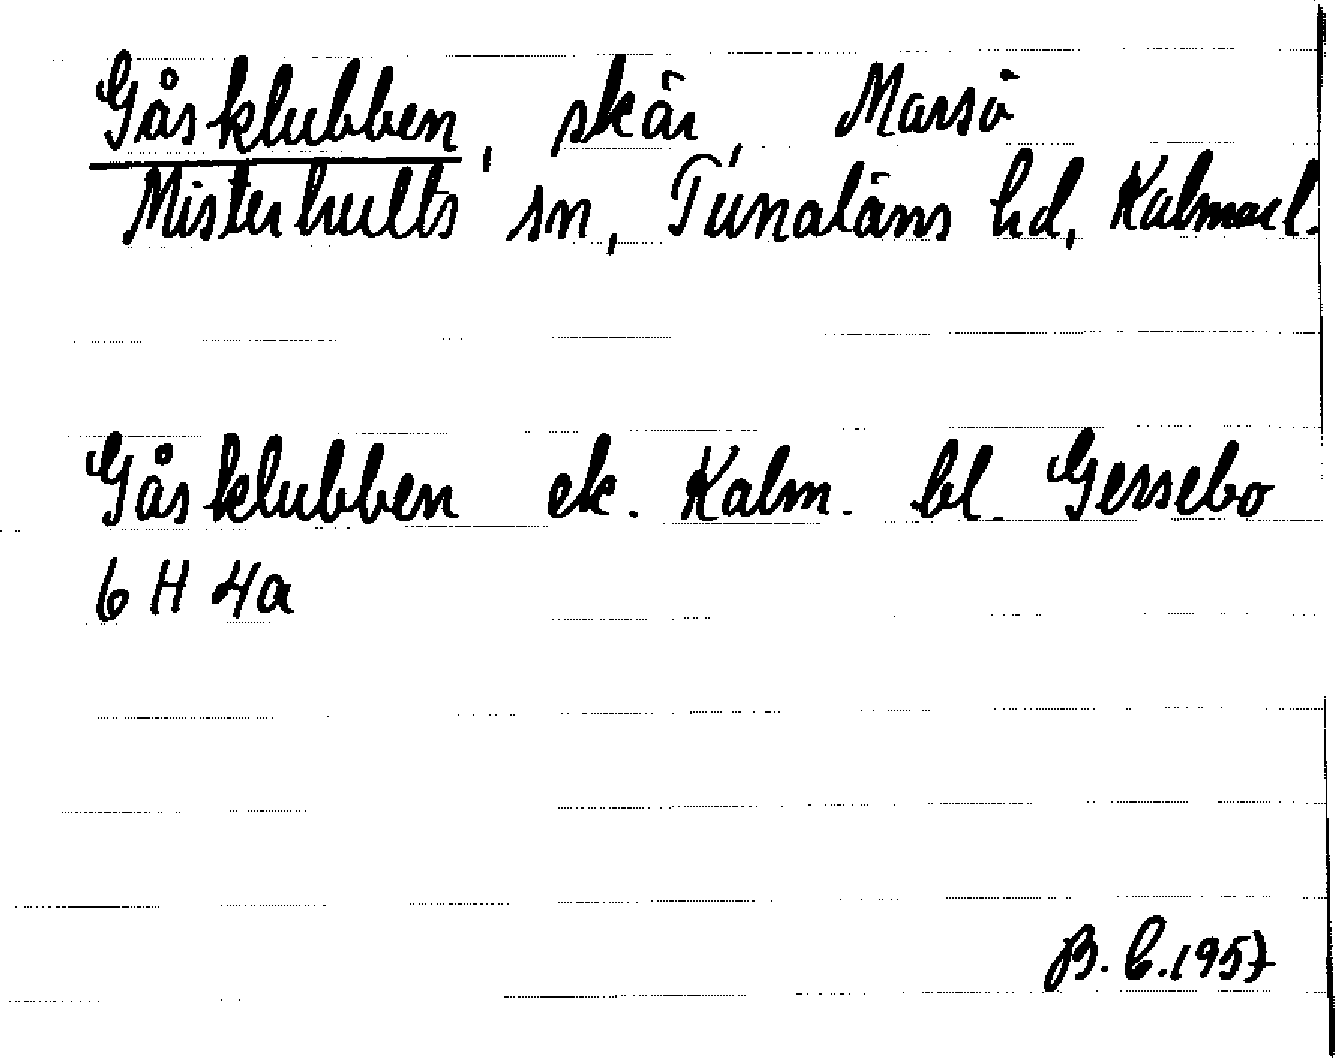 Gåsklubben, skär, Marsö
Misterhults sn, Tunaläns hd, Kalmar l.
Gåsklubben ek. Kalm. bl. Gersebo
6 H 4a
B. E. 1957